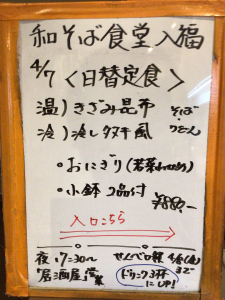 和そば食堂入福
4/7 <日替定食>
温)きざみ昆布 そば
冷)冷しタヌキ風 うどん
・おにぎり(若菜わかめ)
・小鉢 2品付 ¥880-
入口こちら
夜17:30〜 せんべろ軽 4/6(金)まで
居酒屋営業 ドリンク3杯にUP!